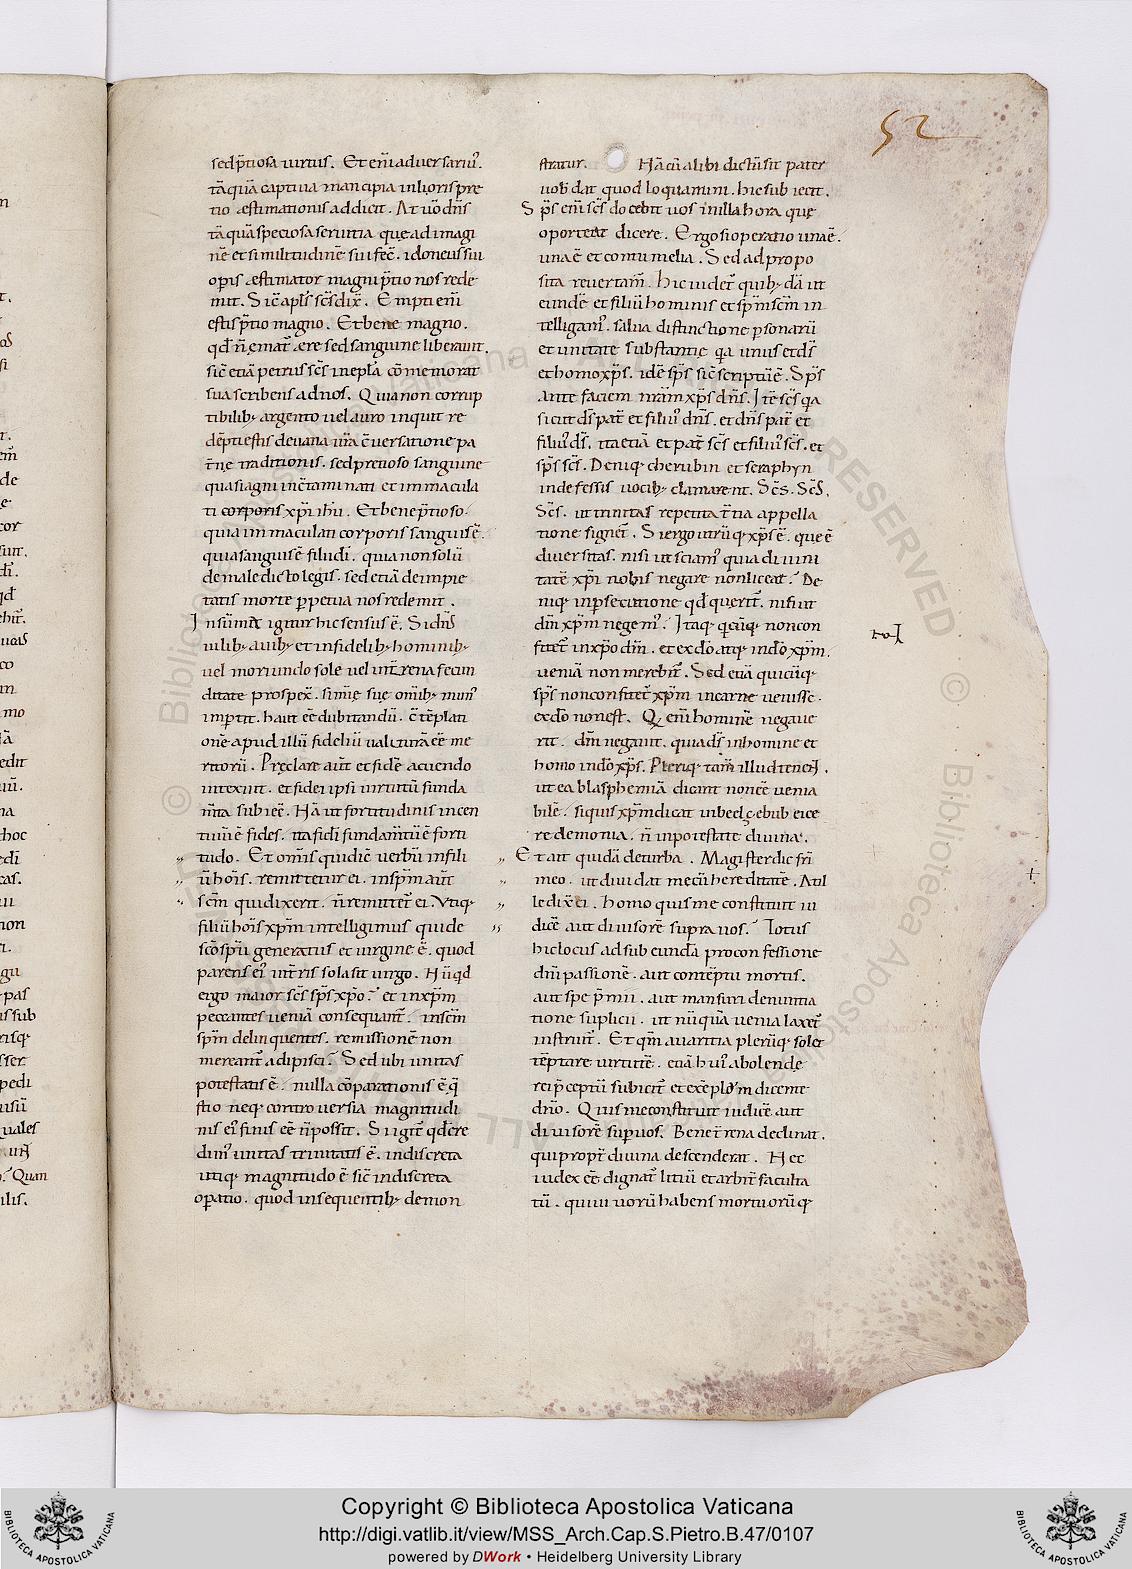 52
sedp̄tiosa uirtus. Et eni᷃ aduersariuꝰ.
tā quā captiua mancipia uilioris pre
tio æstimationis addicit. At uō dn̄s
tā quā speciosa seruitia que ad imagi
nē et similitudinē sui fec̄. idoneus sui
oꝑis æstimator magni p̄tio nos rede
mit. Sic̄ apl̄s sc̄s dix̄. Empti eni᷃
estis p̄tio magno. Et bene magno.
qd̄ n̄ ęmat̄ ære sed sanguine liberauit.
sic̄ etiā petrus sc̄s in epl̄a cōmemorat
sua scribens ad nos. Quia non corrup
tibilibꝫ argento uel auro inquit re
dēpti estis de uana ur̄a c̄uersatione pa
t̄nę traditionis. sed pretioso sanguine
quasi agni inc̄taminati et immacula
ti corporis xp̄i ih̄u. Et bene p̄tioso.
quia immaculati corporis sanguis ē.
quia sanguis ē filii dī. quia non solū
de maledicto legis. sed etiā de impie
tatis morte ꝑpetua nos redemit.
In sūma igitur hic sensus ē. Si dn̄s
uilibꝫ auibꝫ et infidelibꝫ hominibꝫ
uel moriundo sole uel int̄rena fecun
ditate prospex̄. simię suę om̄ibꝫ munꝰ
imꝑtit. haut eē dubitandū. c̄tēplati
onē apud illū fideliū ualiturā eē me
ritorū. Pręclare aut̄ et fidē acuendo
intexuit. et fidei ipsi uirtutū funda
m̄ta subiec̄. Nā ut fortitudinis incen
tiuū ē fides. ita fidi fundam̄tū ē forti
tudo. Et om̄is qui dic̄ uerbū in fili
ū hoīs. remittetur ei. in sp̄m aut̄
sc̄m qui dixerit. n̄ remittet̄ ei. Vtiqꝫ
filiū hoīs xp̄m intelligimus qui de
sc̄o sp̄u generatus ex uirgine ē. quod
parens eiꝰ int̄ris sola sit uirgo. Nūqd
ergo maior sc̄s sp̄s xp̄o? et in xp̄m
peccantes ueniā consequant̄. in sc̄m
sp̄m delinquentes. remissionē non
mereant̄ adipisci? Sed ubi unitas
potestatis ē. nulla cōparationis ē q̄
stio neqꝫ controuersia magnitudi
nis eiꝰ finis eē n̄ possit. Si igit̄ qd̄ cre
dimꝰ unitas trinitatis ē. indiscreta
utiqꝫ magnitudo ē sic̄ indiscreta
oꝑatio. quod in sequentibꝫ demon
stratur. Nā cū alibi dictū sit pater
uob̄ dat quod loquamini. hic subiecit.
Sp̄s eni᷃ sc̄s docebit uos in illa hora quę
oporteat dicere. Ergo si operatio una ē.
una ē et contumelia. Sed ad propo
sita reuertam̄. Hic uidet̄ quibꝫdā ut
eundē et filiū hominis et sp̄m sc̄m in
telligamꝰ. salua distinctione ꝑsonarū
et unitate substantię qa unus et dī
et homo xp̄s. idē sp̄s sic̄ scriptū ē. Sp̄s
ante faciem nr̄am xp̄s dn̄s. Itē sc̄s qa
sicut dī pat̄ et filiꝰ dn̄s. et dn̄s pat̄ et
filiꝰ dī. ita etiā et pat̄ sc̄s et filiꝰ sc̄s. et
sp̄s sc̄s. Deniqꝫ cherubin et seraphyn
indefessis uocibꝫ clamarent. Sc̄s. Sc̄s.
Sc̄s. ut trinitas repetita t̄tia appella
tione signet̄. Si ergo utrūqꝫ xp̄s ē. que ē
diuersitas. nisi ut sciamꝰ quia diuini
tatē xp̄i nobis negare non liceat? De
niqꝫ in ꝑsecutione qd̄ querit̄. nisi ut
dm̄ xp̄m negemꝰ. Itaqꝫ qcūqꝫ non con
fitet̄ in xp̄o dm̄. et ex dō atqꝫ in dō xp̄m.
ueniā non merebit̄. Sed etiā quicūqꝫ
sp̄s non confitet̄ xp̄m in carne uenisse.
ex dō non est. Qꝫ eni᷃ hominē negaue
rit. dm̄ negauit. quia dī in homine et
homo in dō xp̄s. Pleriqꝫ tam̄ illud
ut ea blasphemiā dicant non eē uenia
bilē. si quis xp̄m dicat in beelzebub eice
re demonia. n̄ in potestate diuina.
Et ait quidā de turba. Magister dic fr̄i
meo. ut diuidat mecū hereditatē. At il
le dix̄ ei. homo quis me constituit iu
dicē aut diuisorē supra uos? Totus
hic locus ad subeundā pro confessione
dm̄ passionē. aut contēptu mortis.
aut spe p̄mii. aut mansuri denuntia
tione suplicii. ut nūquā uenia laxet̄
instruit̄. Et qm̄ auaritia plerūqꝫ solet
tēptare uirtutē. etiā huiꝰ abolendę
rei p̄ceptū subicit̄ et exēplōm dicente
dn̄o. Quis me constituit iudicē aut
diuisorē supuos. Bene t̄rena declinat.
qui propt̄ diuina descenderat. Nec
iudex eē dignat̄ litiū et arbit̄ faculta
tū. qui uiuorū habens mortuorūqꝫ